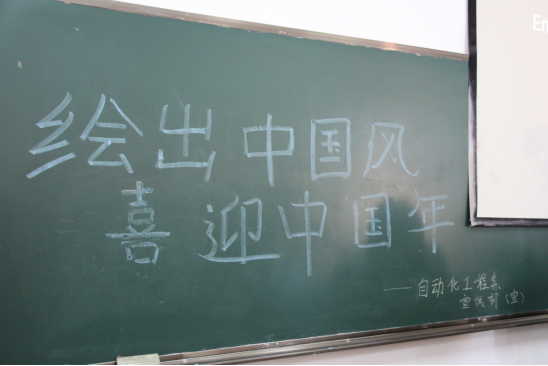 绘出中国风
喜迎中国年
——自动化工程系
En